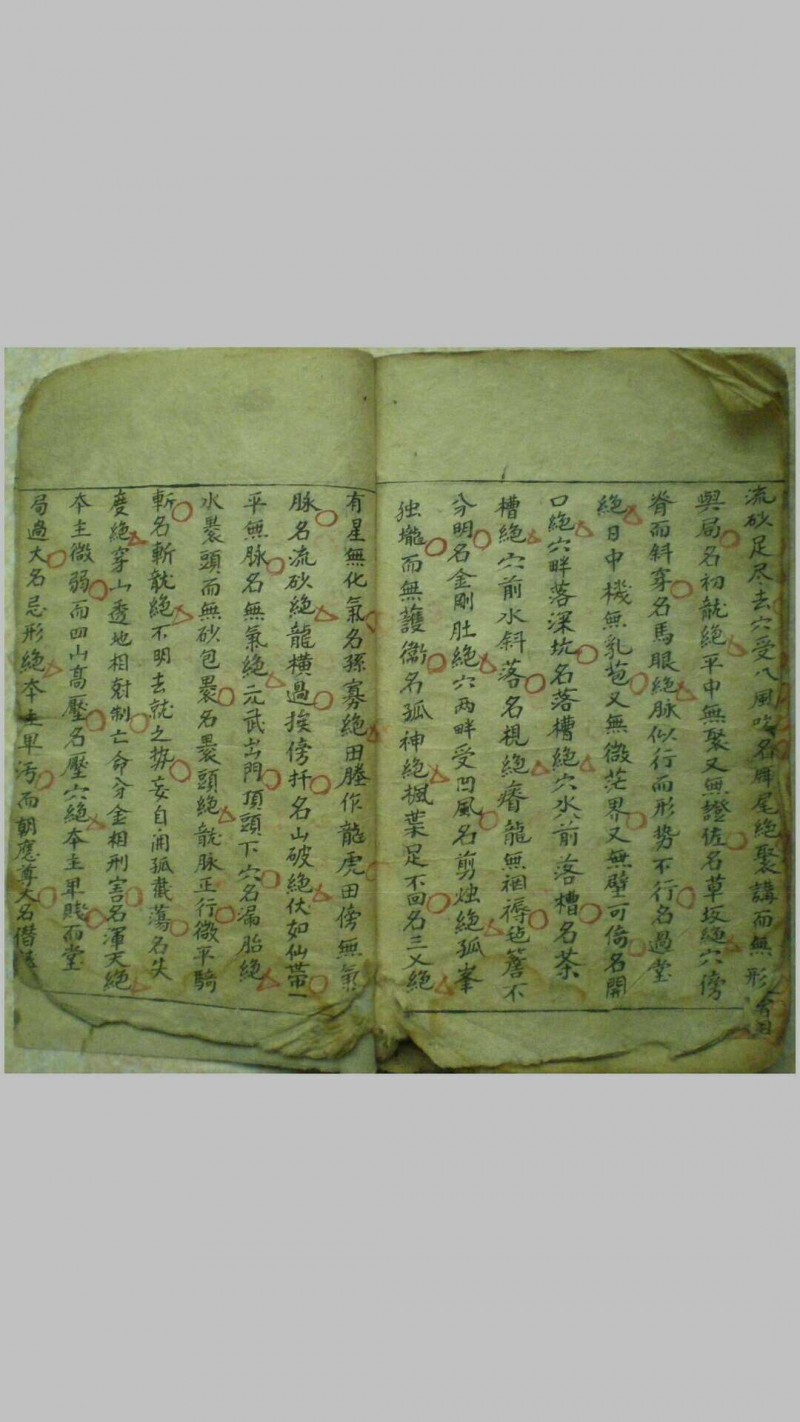 流砂足尽去穴受八風吹名牌尾絕聚講而無形
與局名初龍絕平中無聚又無證佐名草坂絕穴傍
脊而斜穿名馬眼絕脉似行而形势不行名過堂
絕日中機無乳苞又無微茫界又無壁可倚名開
口絕穴畔落深坑名落槽絕穴水前落槽名茶
槽絕穴前水斜落名梘絕瘠龍無裀褥毡簷不
分明名金剛肚絕穴两畔受凹風名剪烛絕孤峯
独壠而無護衛名孤神絕楓葉足不回名三义絕
有星無化氣名孫寡絕田塍作龍虎田傍無氣
脉名流砂絕龍橫過挨傍扦名山破絕伏如仙帶一
平無脉名無氣絕元武出門頂頭下穴名漏胎絕
水裹頭而無砂包裹名裹頭絕龍脉正行微平騎
斬名斬龍絕不明去就之势妄自開孤截蕩名失
度絕穿山透地相射制亡命分金相刑害名渾天絕
本主微弱而四山高壓名壓穴絕本主卑賤而堂
局過大名忌形絕本主卑污而朝應尊大名僭